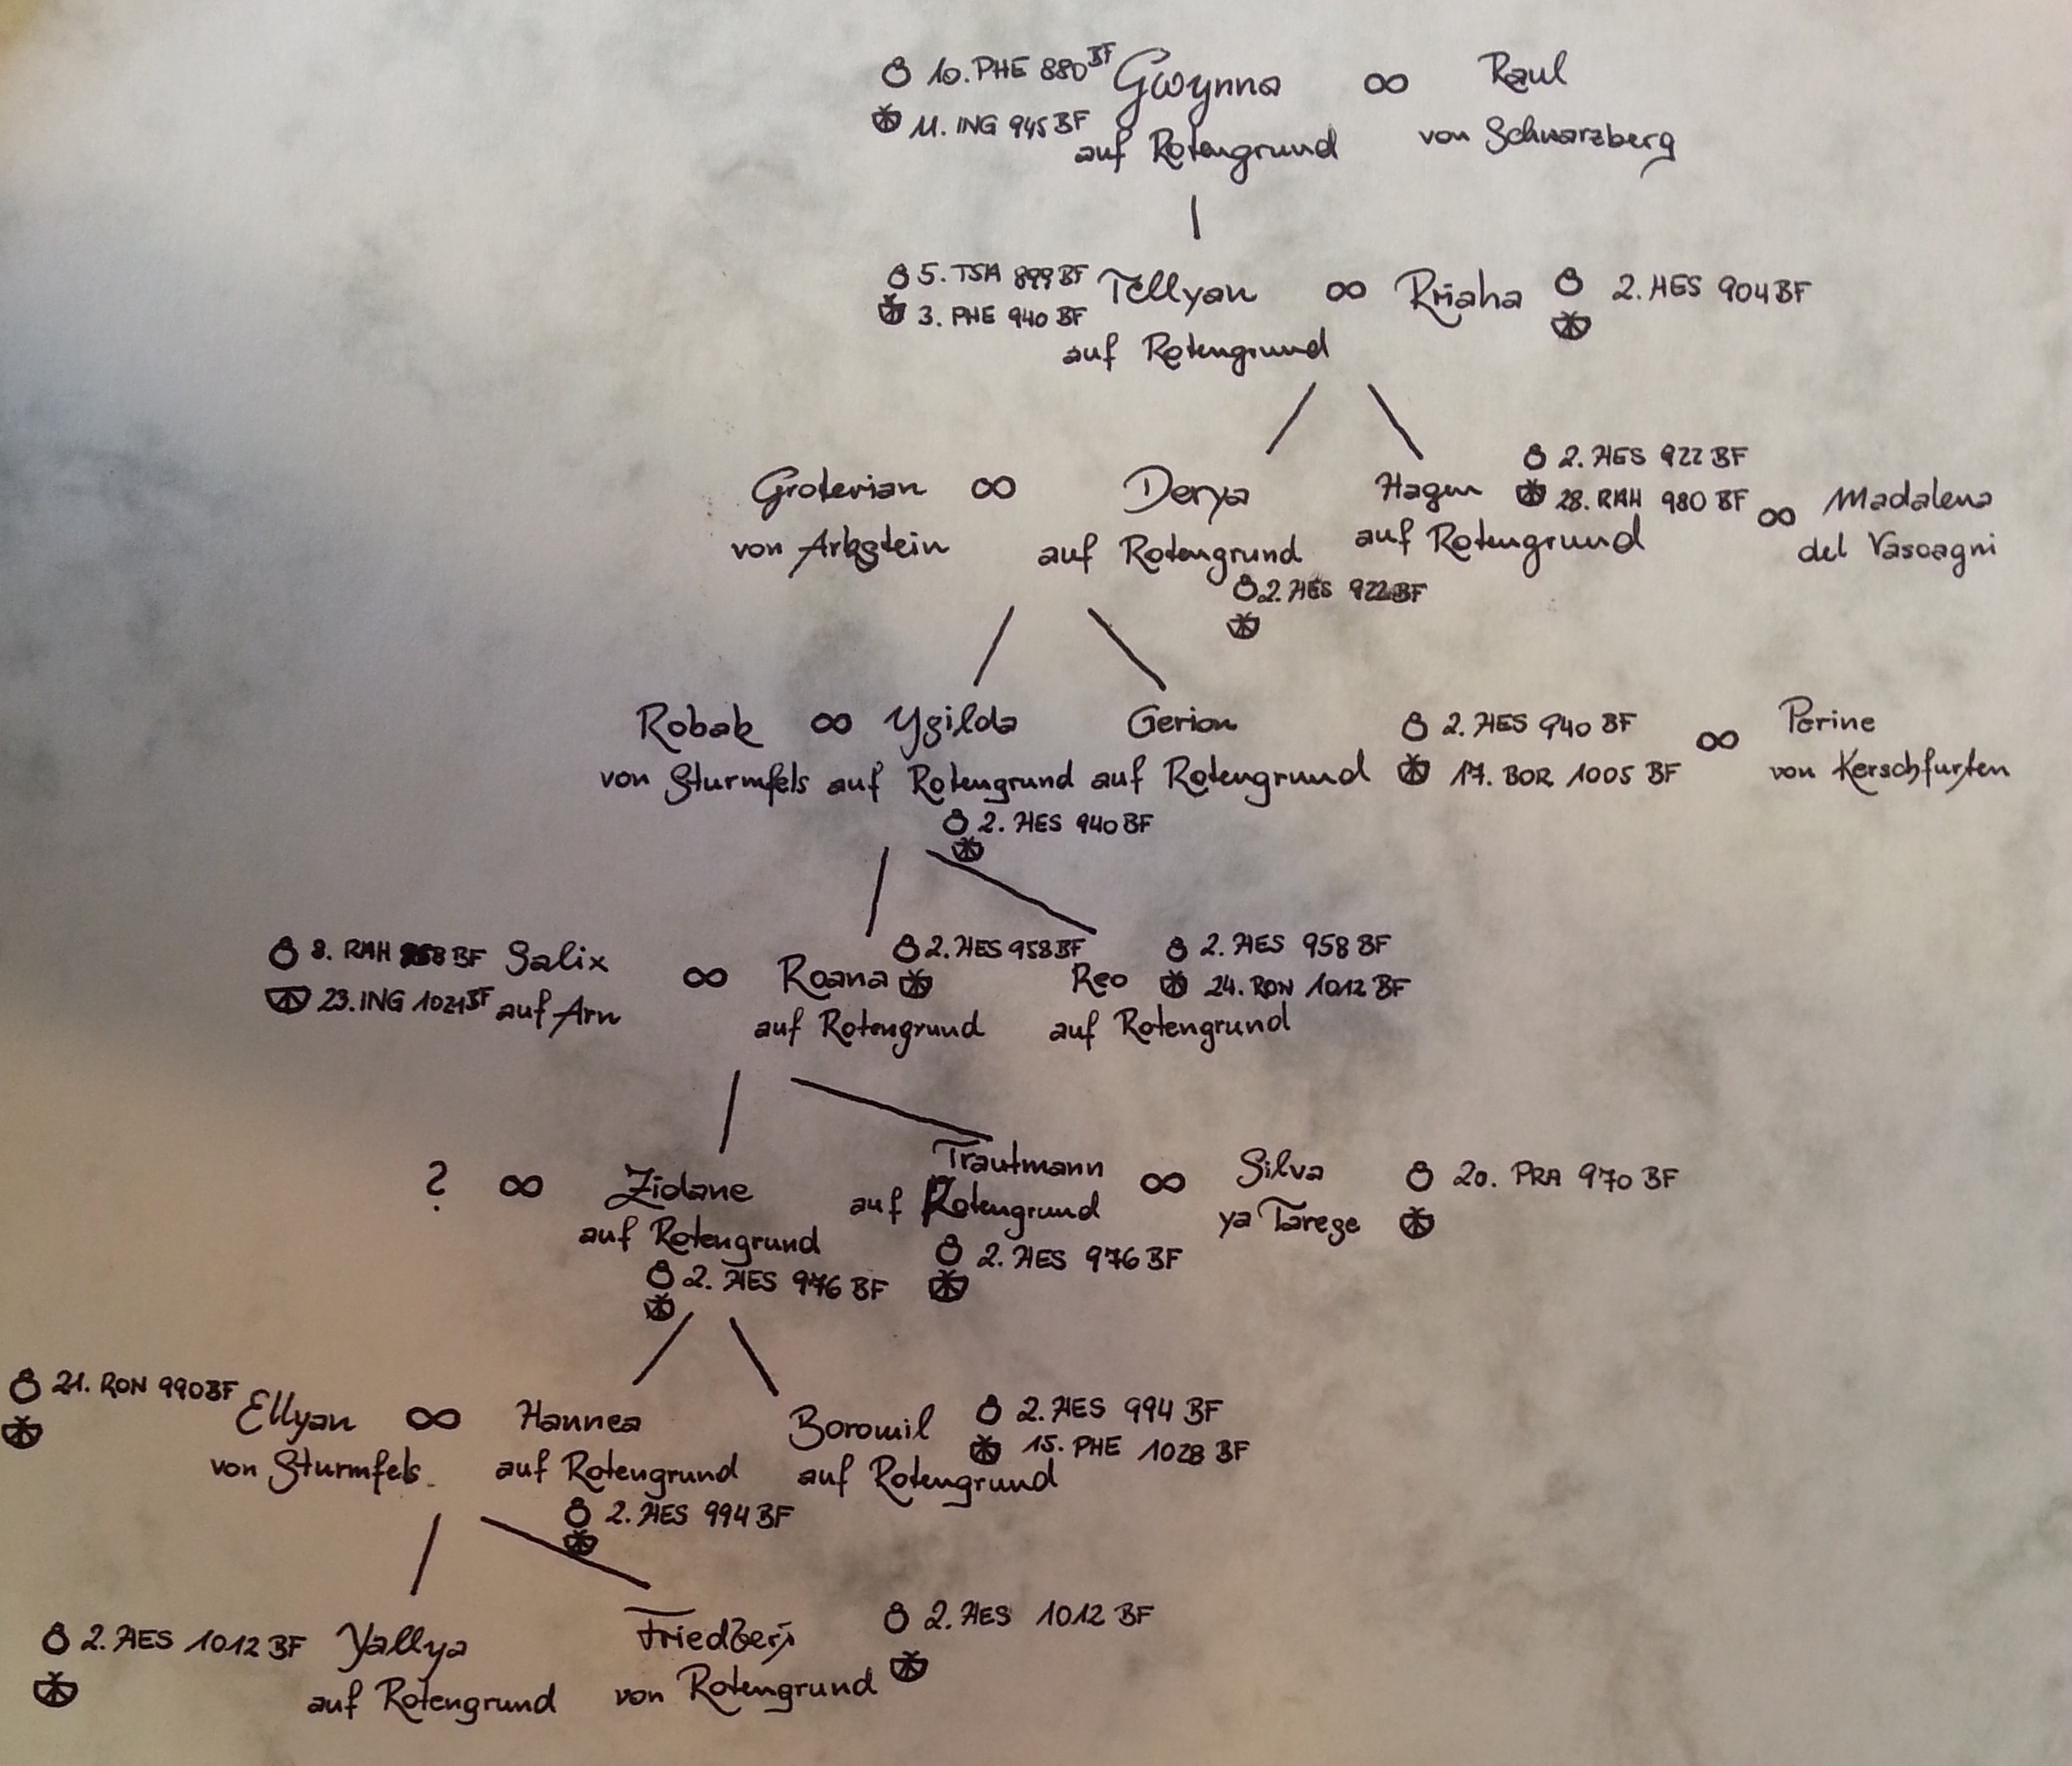 10. PHE 880 BF Gwynna ∞ Raul
11. ING 945 BF auf Rotengrund von Schwarzberg
5. TSA 899 BF Tellyan ∞ Riiaha 2. HES 904 BF
3. PHE 940 BF
auf Rotengrund
2. HES 922 BF
Groterian ∞ Derya Hagen 28. RAH 980 BF ∞ Madalena
von Arbstein auf Rotengrund auf Rotengrund del Vascagni
2. HES 922 BF
Robak ∞ Ygilda Gerion 2. HES 940 BF ∞ Perine
von Sturmfels auf Rotengrund auf Rotengrund 17. BOR 1005 BF von Kerschfurten
2. HES 940 BF
8. RAH BF Salix ∞ Roana 2. HES 958 BF Reo 2. HES 958 BF
23. ING 1021 BF auf Arn auf Rotengrund auf Rotengrund 24. RON 1012 BF
? ∞ Zidane Trautmann ∞ Silva 20. PRA 970 BF
auf Rotengrund auf Rotengrund ya Tarege
2. HES 976 BF 2. HES 976 BF
21. RON 990 BF Ellyan ∞ Hannea Boromil 2. HES 994 BF
15. PHE 1028 BF
von Sturmfels auf Rotengrund auf Rotengrund
2. HES 994 BF
2. HES 1012 BF Yallya Friedberj 2. HES 1012 BF
auf Rotengrund von Rotengrund